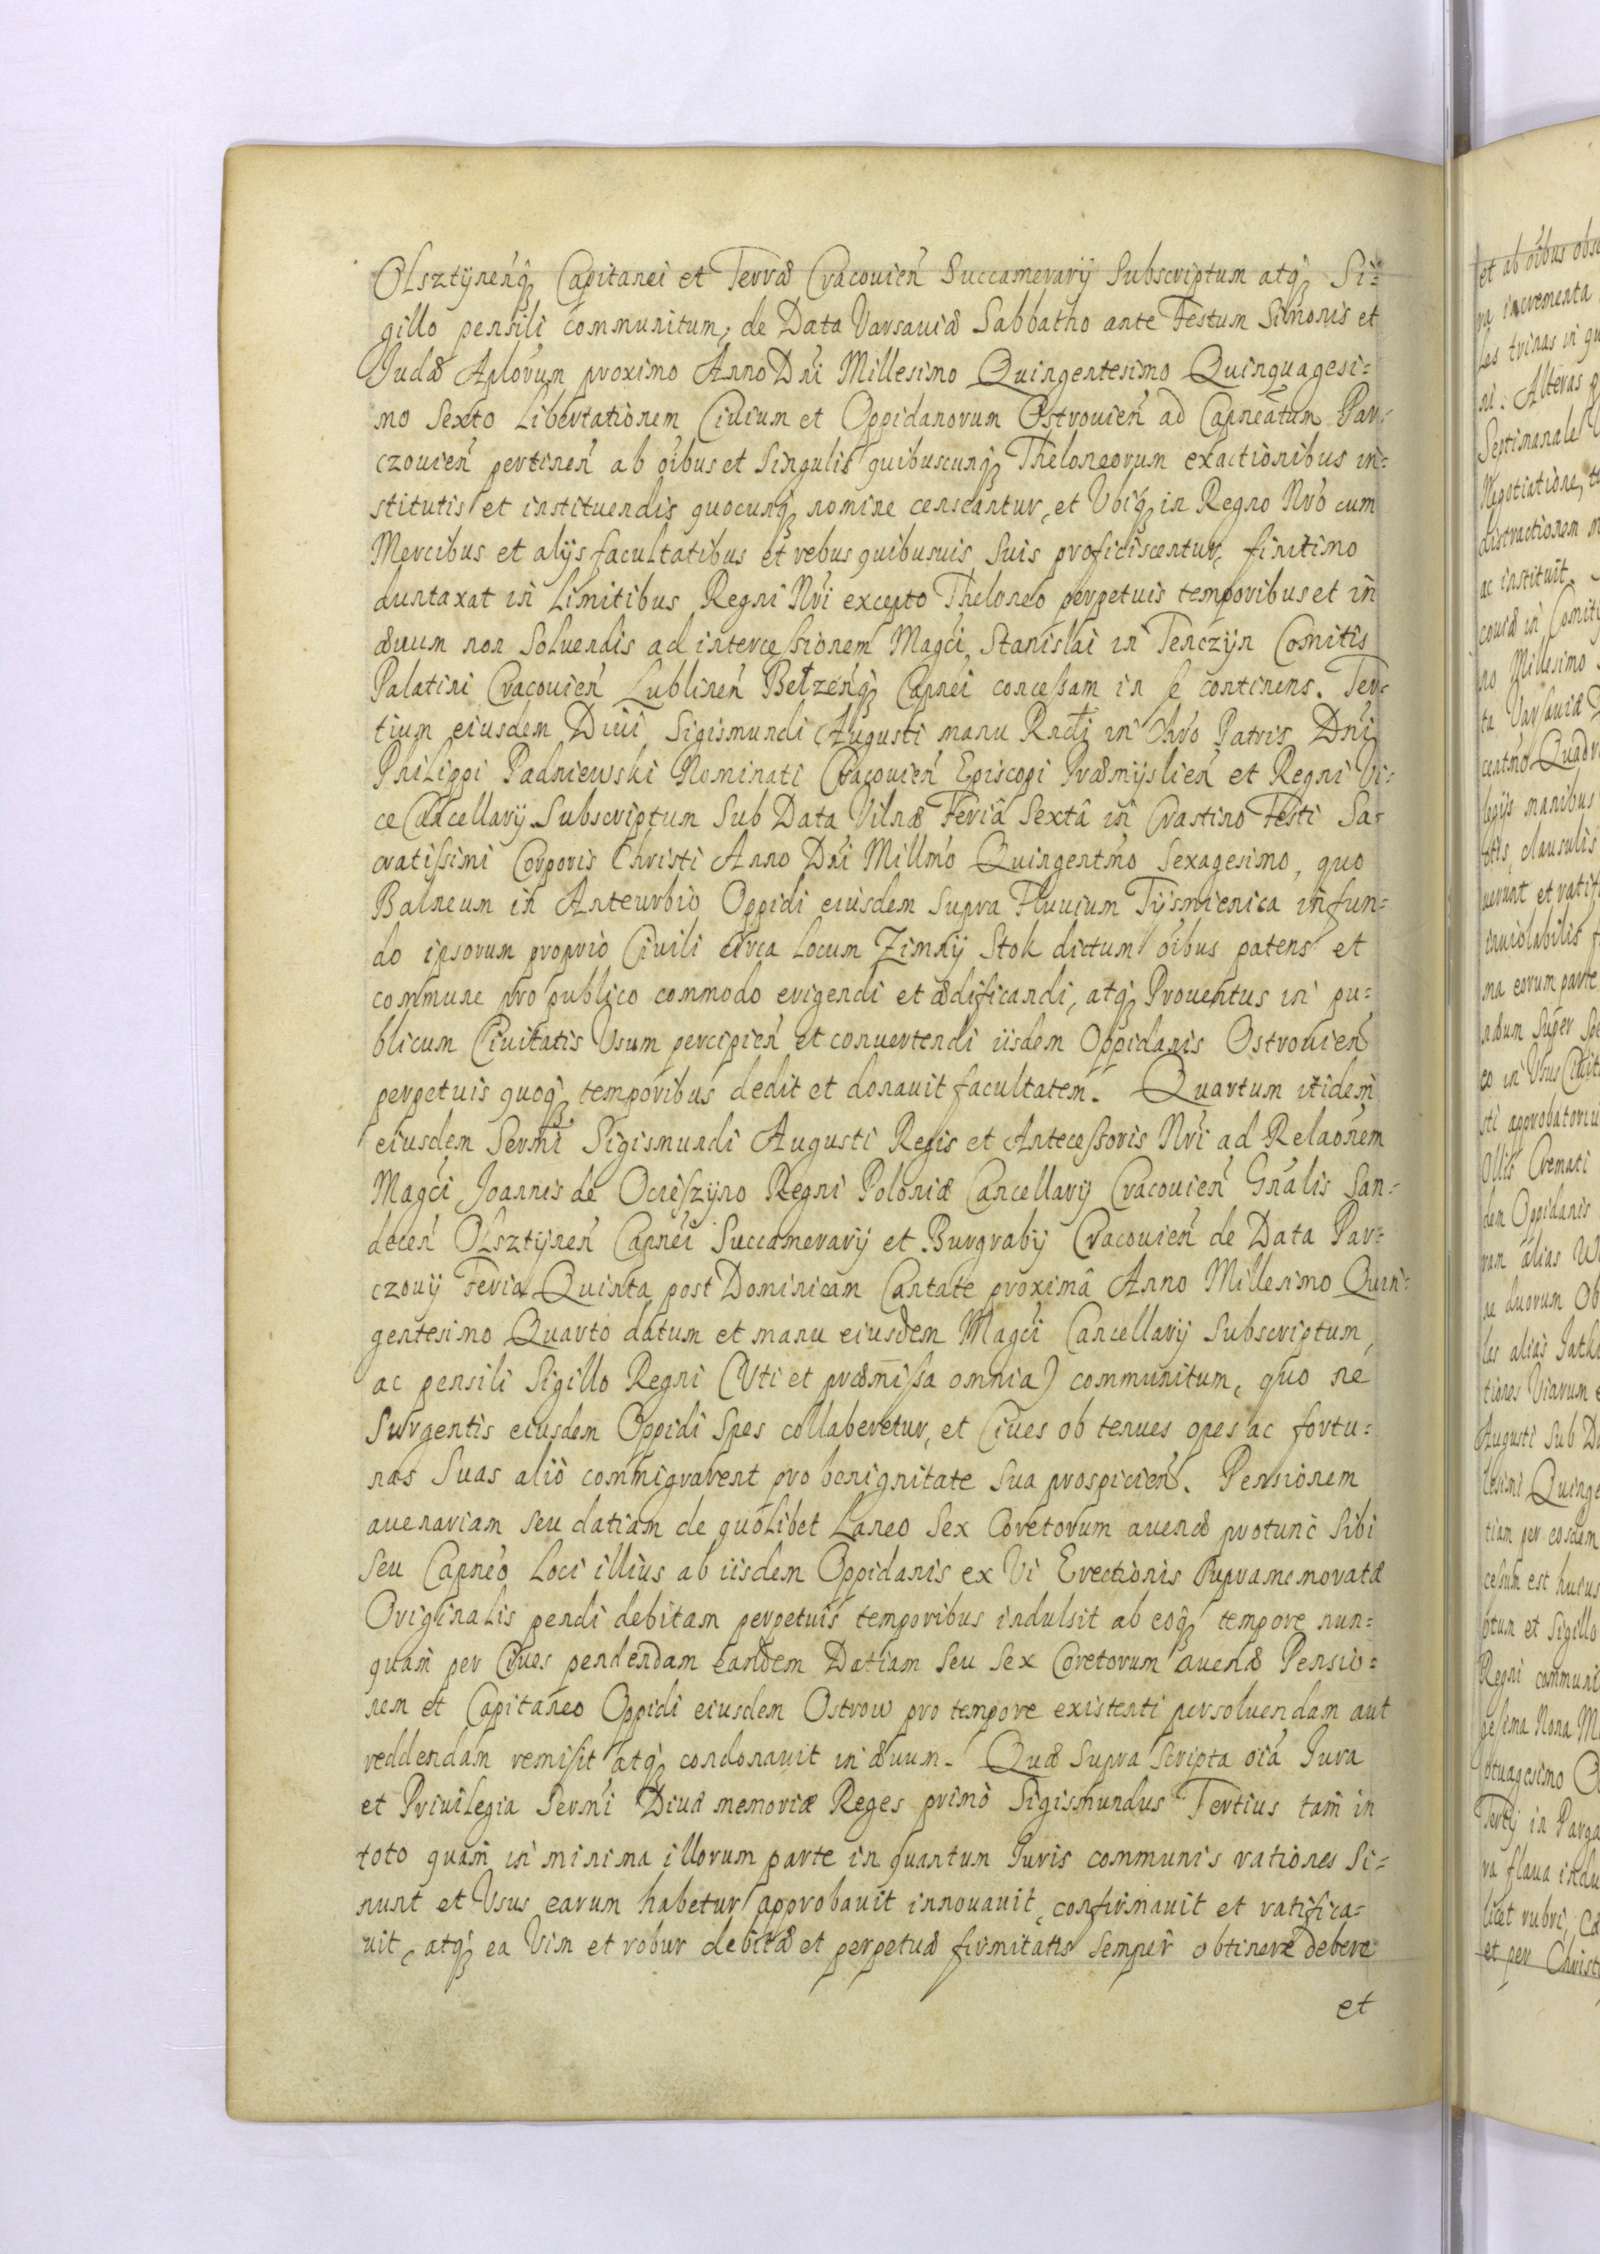 Olsztÿnenq₃ Capitanei et Terræ Cracouien̄ Succamerarij Subscriptum atq₃ Si=
gillo pensili communitum, de Data Varsauiæ Sabbatho ante Festum Simonis et
Judæ Aplórum proximo Anno Dni Millesimo Quingentesimo Quinquagesi=
mo Sexto Libertationem Ciuium et Oppidanorum Ostrouien̄ ad Capneátum Par=
czouien̄ pertinen̄ ab óibus et Singulis quibuscunq₃ Theloneorum exactionibus in=
stitutis et instituendis quocunq₃ nomine censeantur, et Vbiq₃ in Regno Nró cum
Mercibus et alijs facultatibus et rebus quibusuis Suis proficiscentur, finitimo
duntaxat in Limitibus Regni Nri excepto Theloneo perpetuis temporibus et in
æuum non Soluendis ad intercessionem Magci Stanislai in Tenczÿn Comitis
Palatini Cracouien̄ Lublinen̄ Betzénq₃ Capnéi concessam in se continens. Ter=
tium eiusdem Diui Sigismundi Augusti manu Rndi in Chró Patris Dni
Philippi Padniewski Nominati Cracouien̄ Episcopi Præmÿslien̄ et Regni Vi=
ce Cancellarij Subscriptum Sub Data Vilnæ Feriâ Sextâ in Crastino Festi Sa=
cratissimi Corporis Christi Anno Dni Millmó Quingentmó Sexagesimo, quo
Balneum in Anteurbio Oppidi eiusdem Supra Fluuium Tÿsmienica in fun=
do ipsorum proprio Ciuili circa Locum Zimnÿ Stok dictum óibus patens et
commune pro publico commodo erigendi et ædificandi, atq₃ Prouentus in pu=
blicum Ciuitatis Vsum percipien̄ et conuertendi iisdem Oppidanis Ostrouien̄
perpetuis quoq₃ temporibus dedit et donauit facultatem. Quartum itidem
eiusdem Sermi Sigismundi Augusti Regis et Antecessoris Nri ad Relaónem
Magci Joannis de Ocieszÿno Regni Poloniæ Cancellarij Cracouien̄ Gnális San=
decen̄ Olsztÿnen̄ Capnéi Succamerarij et Burgrabij Cracouien̄ de Data Par=
czouij Feria Quinta post Dominicam Cantate proximâ Anno Millesimo Quin=
gentesimo Quarto datum et manu eiusdem Magci Cancellarij Subscriptum,
ac pensili Sigillo Regni (Vti et præmissa omnia) communitum, quo ne
Surgentis eiusdem Oppidi Spes collaberetur, et Ciues ob tenues opes ac fortu=
nas Suas aliò commigrarent pro benignitate Sua prospicien̄. Pensionem
auenariam Seu datiam de quolibet Laneo Sex Coretorum auenæ protunc Sibi
Seu Capnéo Loci illius ab iisdem Oppidanis ex Vi Erectionis Supramemoratæ
Originalis pendi debitam perpetuis temporibus indulsit ab eoq₃ tempore nun=
quam per Ciues pendendam eandem Datiam Seu Sex Coretorum auenæ Pensio=
nem et Capitaneo Oppidi eiusdem Ostrow pro tempore existenti persoluendam aut
reddendam remisit atq₃ condonauit in æuum. Quæ Supra Scripta oiá Jura
et Priuilegia Sermi Diuæ memoriæ Reges primò Sigismundus Tertius tam in
toto quam in minima illorum parte in quantum Juris communis rationes Si=
nunt et Vsus earum habetur approbauit innouauit, confirmauit et ratifica=
uit, atq₃ ea Vim et robur debitæ et perpetuæ firmitatis Semper obtinere debere
et
et ab óibus obse
ra incrementa
les trinas in qu
ni. Alteras p
Septimanale
Negotiatione, t
distractionem
ac instituit.
couiæ in Comiti
no Millesimo
ta Varsauiæ D
Quadr
legijs manibus
clausulis
uerunt et ratif
inuiolabilis f
ma eorum parte
Super Spe
eo in Vsus Ciuit
sti approbatoriu
Ollis Cremati
dem Oppidanis
ram alias W
ne duorum Ob
las alias Jatk
tiones Viarum e
Augusti Sub Da
tesimi Quinge
tiam per eosdem
cessum est huius
ptum et Sigillo
Regni communi
gesima Nona M
ptuagesimo O
Tertij in
ra flaua indu
licet rubri, Ca
et per Christ